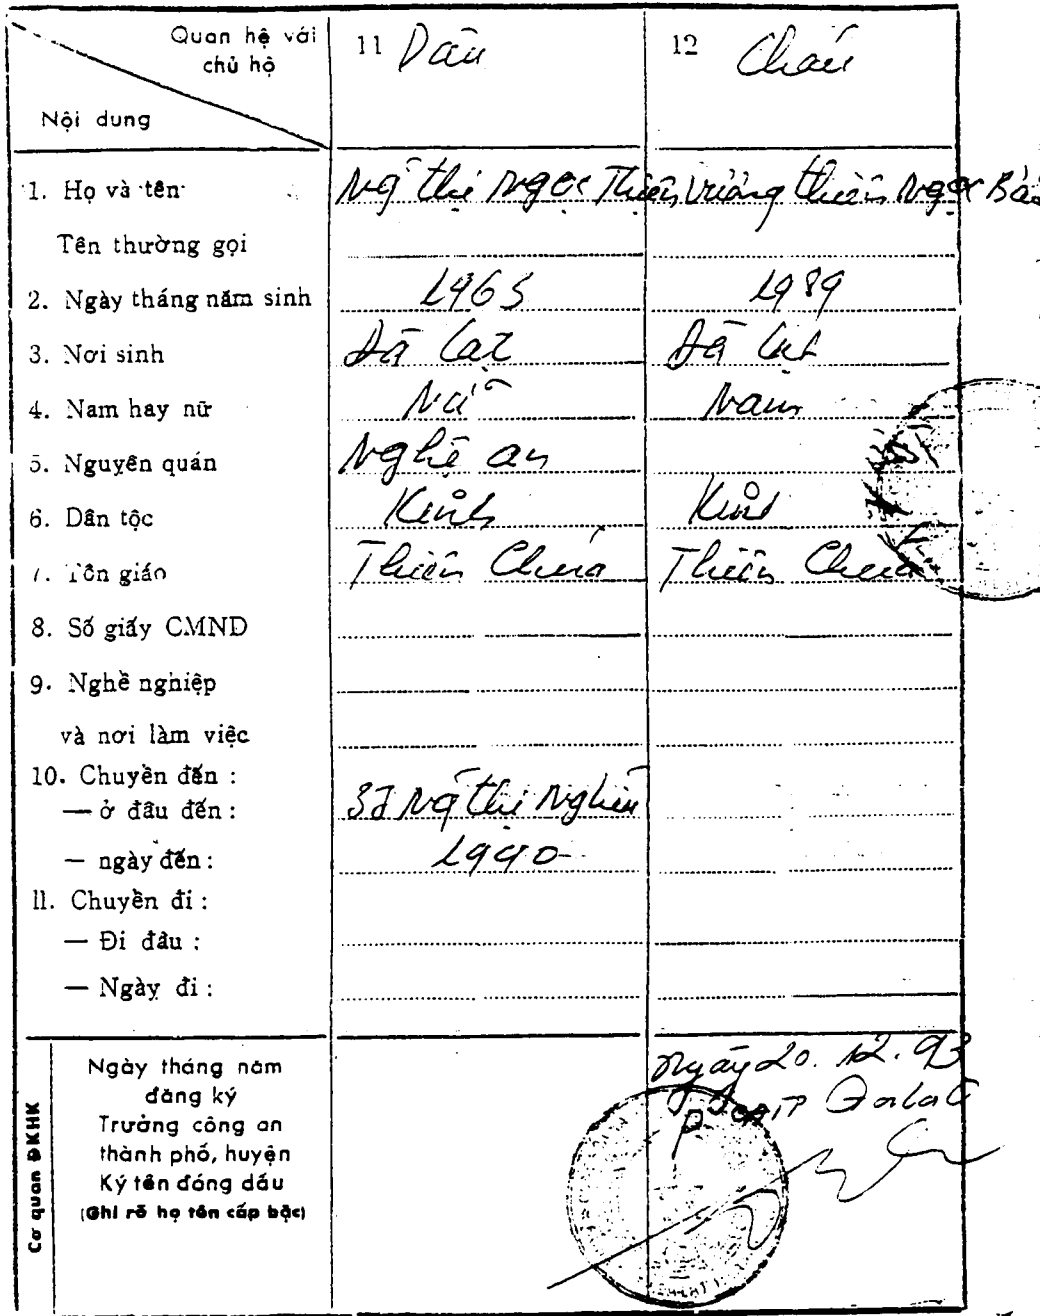 Quan hệ với chủ hộ
Nội dung
11 Dâu
12 Cháu
1. Họ và tên Ngô thị Ngọc Thiện Vương thiên Ngọc Bảo
Tên thường gọi
2. Ngày tháng năm sinh 1965 1989
3. Nơi sinh Đà Lạt Đà Lạt
4. Nam hay nữ Nữ Nam
5. Nguyên quán Nghệ an
6. Dân tộc Kinh Kinh
7. Tôn giáo Thiên Chúa Thiên Chúa
8. Số giấy CMND
9. Nghề nghiệp
và nơi làm việc
10. Chuyển đến :
— ở đâu đến :
— ngày đến : 1990
11. Chuyển đi :
— Đi đâu :
— Ngày đi :
Cơ quan ĐKHK
Ngày tháng năm
đăng ký
Trưởng công an
thành phố, huyện
Ký tên đóng dấu
(Ghi rõ họ tên cấp bậc)
Ngày 20.12.93